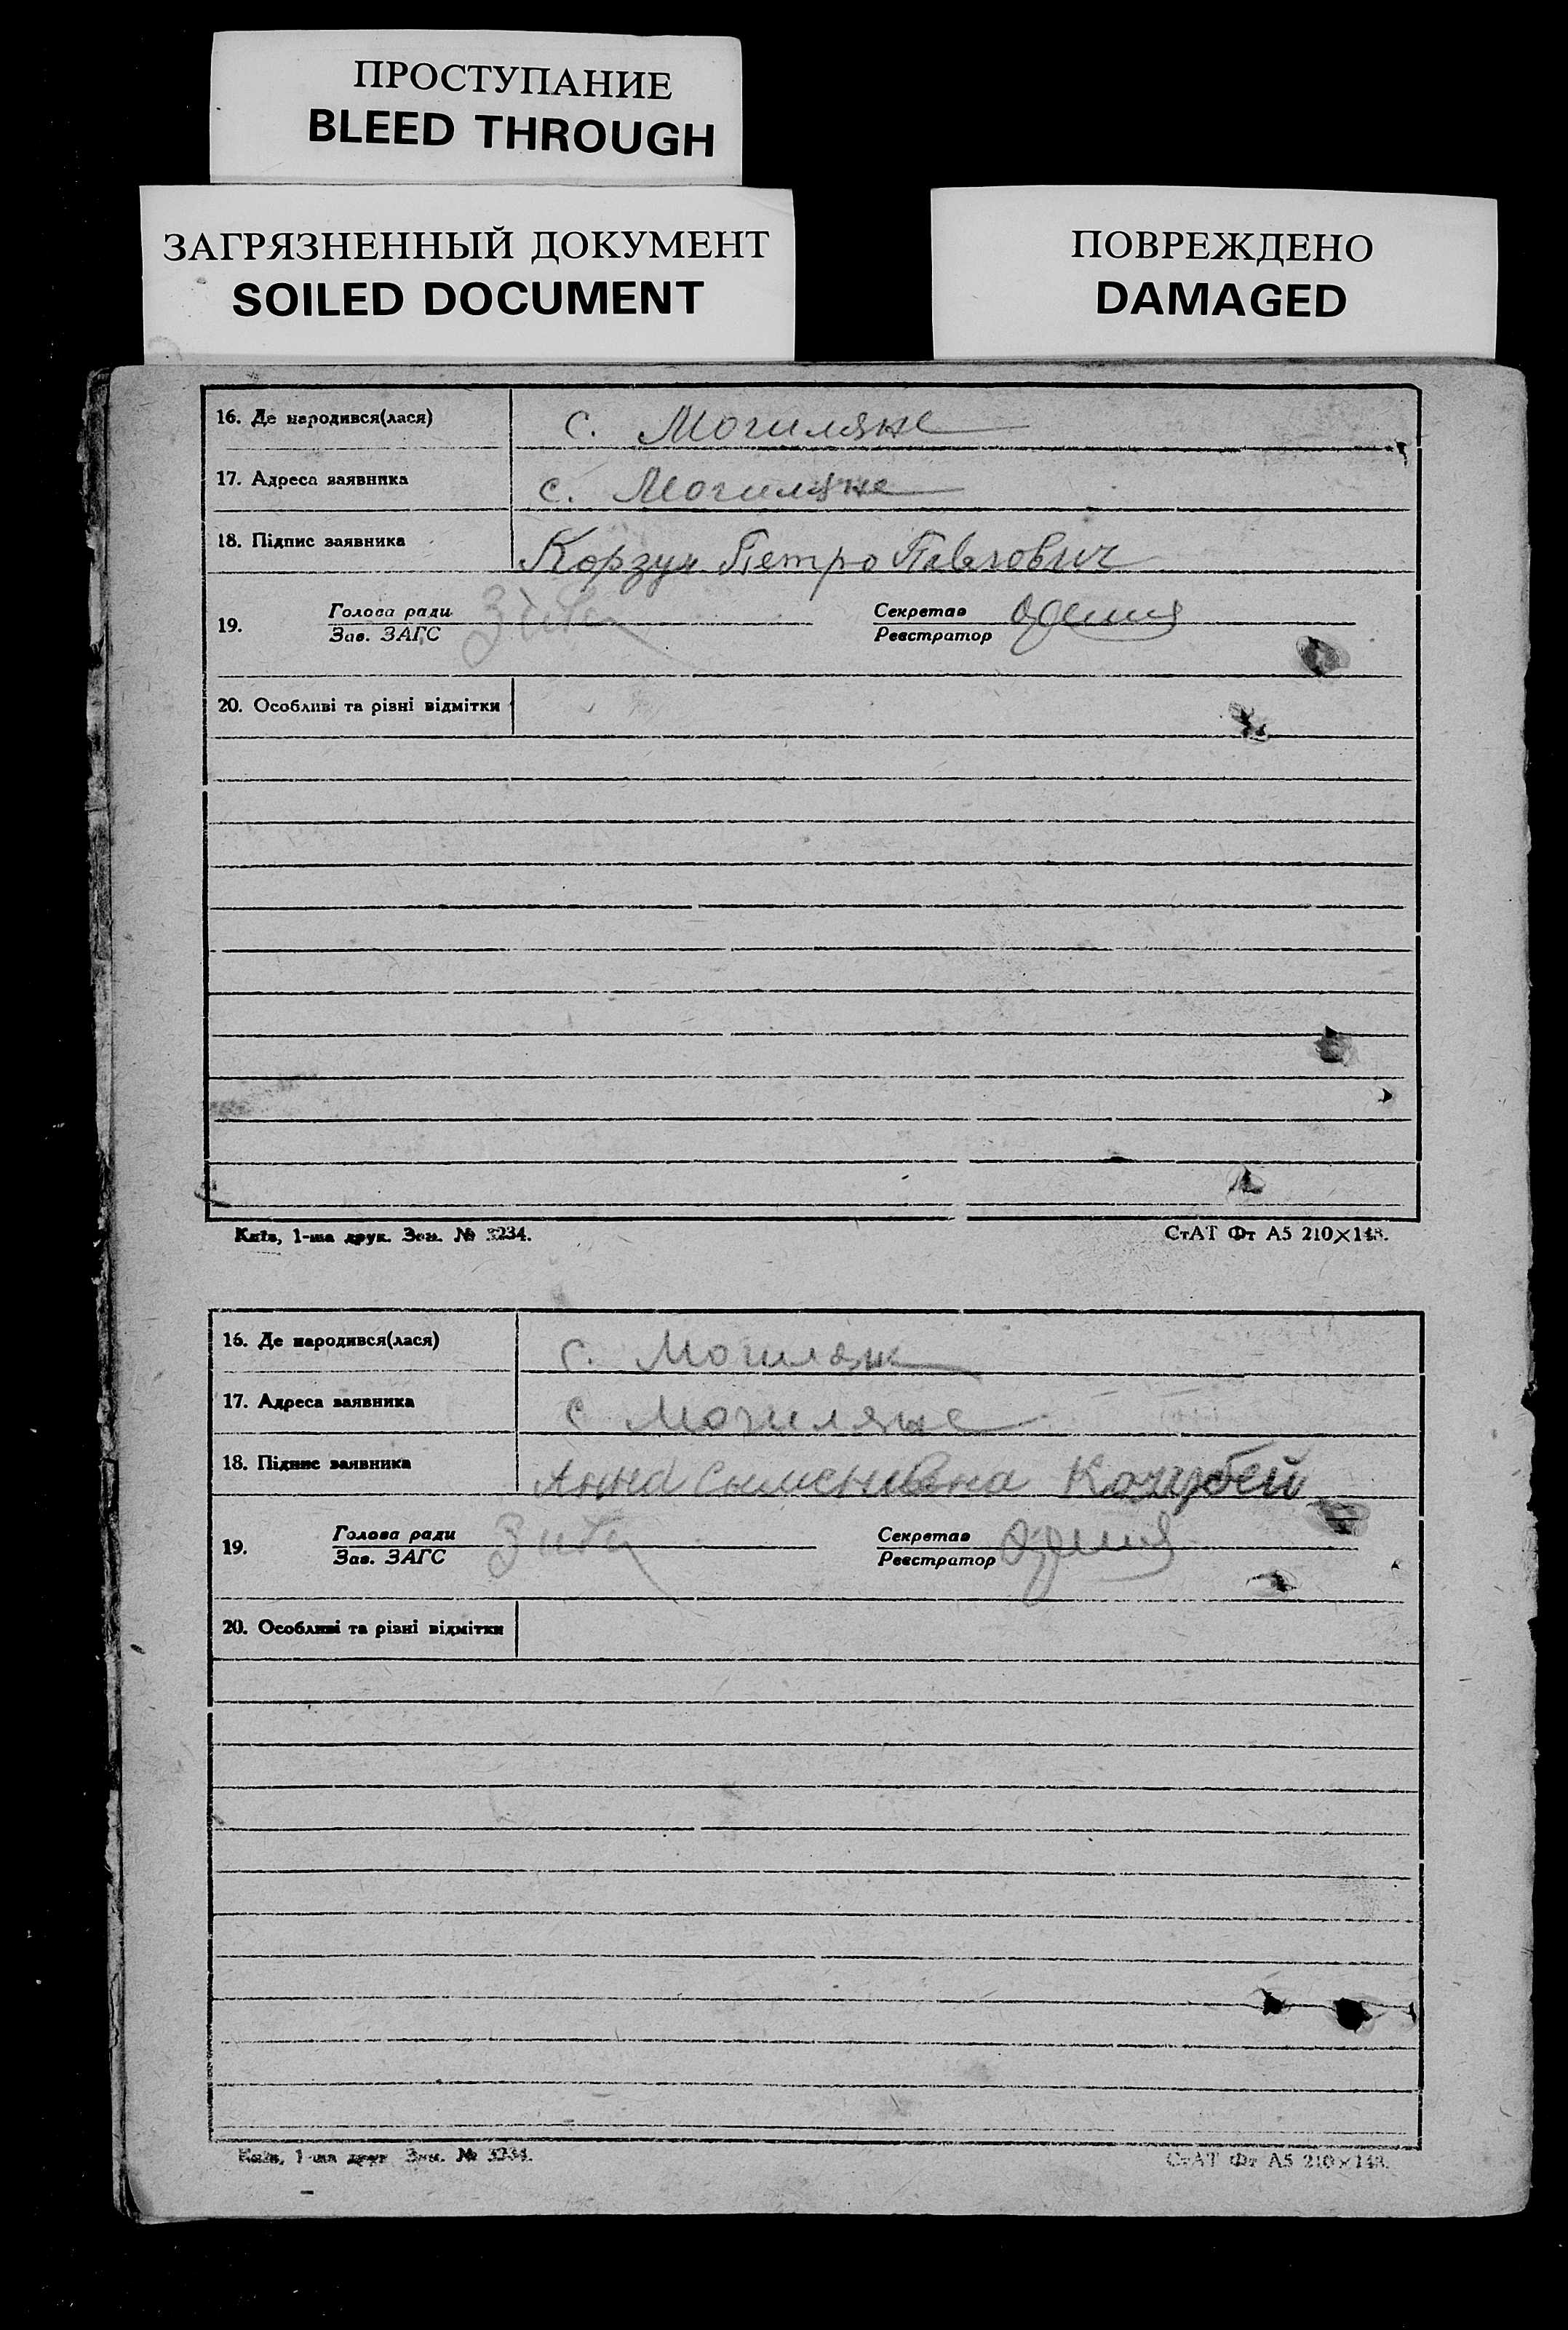 ПРОСТУПАНИЕ
BLEED THROUGH
ЗАГРЯЗНЕННЫЙ ДОКУМЕНТ
SOILED DOCUMENT
ПОВРЕЖДЕНО
DAMAGED
16. Де народився(лася) с. Могиляне
17. Адреса заявника с. Могиляне
18. Підпис заявника Корзун Петро Павлович
19. Голова ради Секретар
Зав. ЗАГС Реєстратор
20. Особливі та різні відмітки
Київ, 1-ша друк. Зам. № 3234. СтАТ Фт А5 210×148.
16. Де народився(лася) с. Могиляне
17. Адреса заявника с Могиляне
18. Підпис заявника Анна Сыменивна Коцубей
19. Голова ради Секретар
Зав. ЗАГС Реєстратор
20. Особливі та різні відмітки
Київ, 1-ша друк. Зам. № 3234. СтАТ Фт А5 210×148.